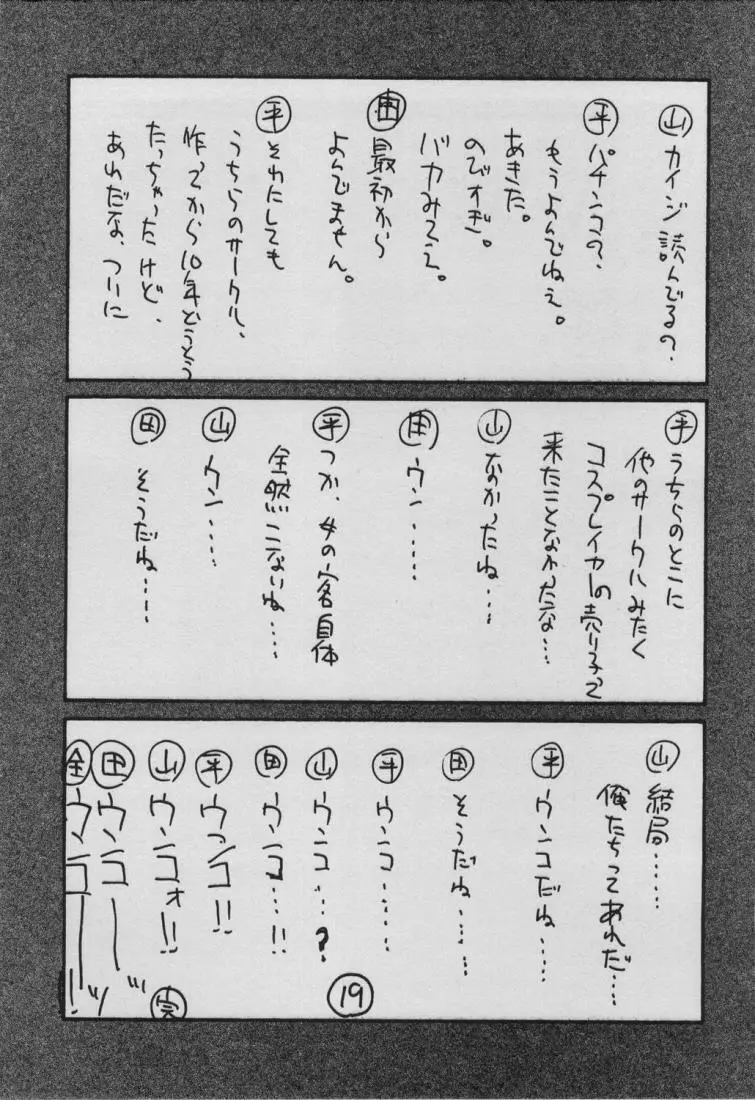 山 カイジ読んでるの?
平 パチンコの?
もうよんでねえ。
あきた。
のびすぎ。
バカみてえ。
田 最初から
よんでません。
平 それにしても
うちらのサークル、
作ってから10年どうそう
たっちゃったけど、
あれだな、ついに
平 うちらのとこに
他のサークルみたく
コスプレイヤーの売り子って
来たことなかったな…
山 なかったね…
田 ウン……
平 つか、女の客自体
全然こないね……
山 ウン……
田 そうだね…
山 結局……
俺たちってあれだ…
平 ウンコだね……
田 そうだね……
平 ウンコ……
山 ウンコ…?
田 ウンコ…!!
平 ウンコ!!
山 ウンコォ!!
田 ウンコーッ!!
全 ウンコーッ!
完
19